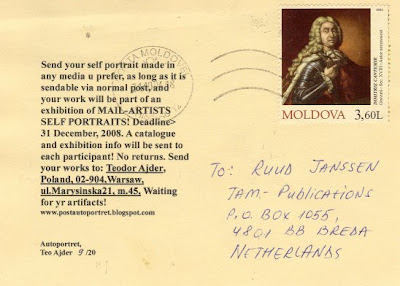 Send your self portrait made in
any media u prefer, as long as it is
sendable via normal post, and
your work will be part of an
exhibition of MAIL-ARTISTS
SELF PORTRAITS! Deadline>
31 December, 2008. A catalogue
and exhibition info will be sent to
each participant! No returns. Send
your works to: Teodor Ajder,
Poland, 02-904,Warsaw,
ul.Marysinska21, m.45. Waiting
for yr artifacts!
www.postautoportret.blogspot.com
Autoportret,
Teo Ajder 9/20
POSTA MOLDOVA
DIMITRIE CANTEMIR
MOLDOVA 3,60L
To: RUUD JANSSEN
TAM- Publications
P.O. BOX 1055,
4801 BB BREDA
NETHERLANDS